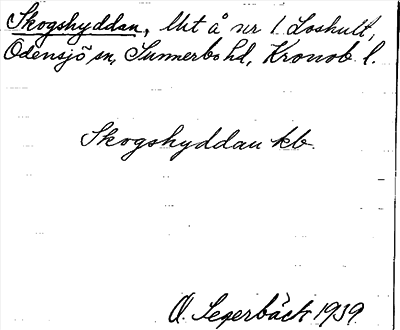 Skogshyddan, lht å nr 1 Loshult,
Odensjö sn, Sunnerbo hd, Kronob l.
Skogshyddan kb.
O. Segerbäck 1939